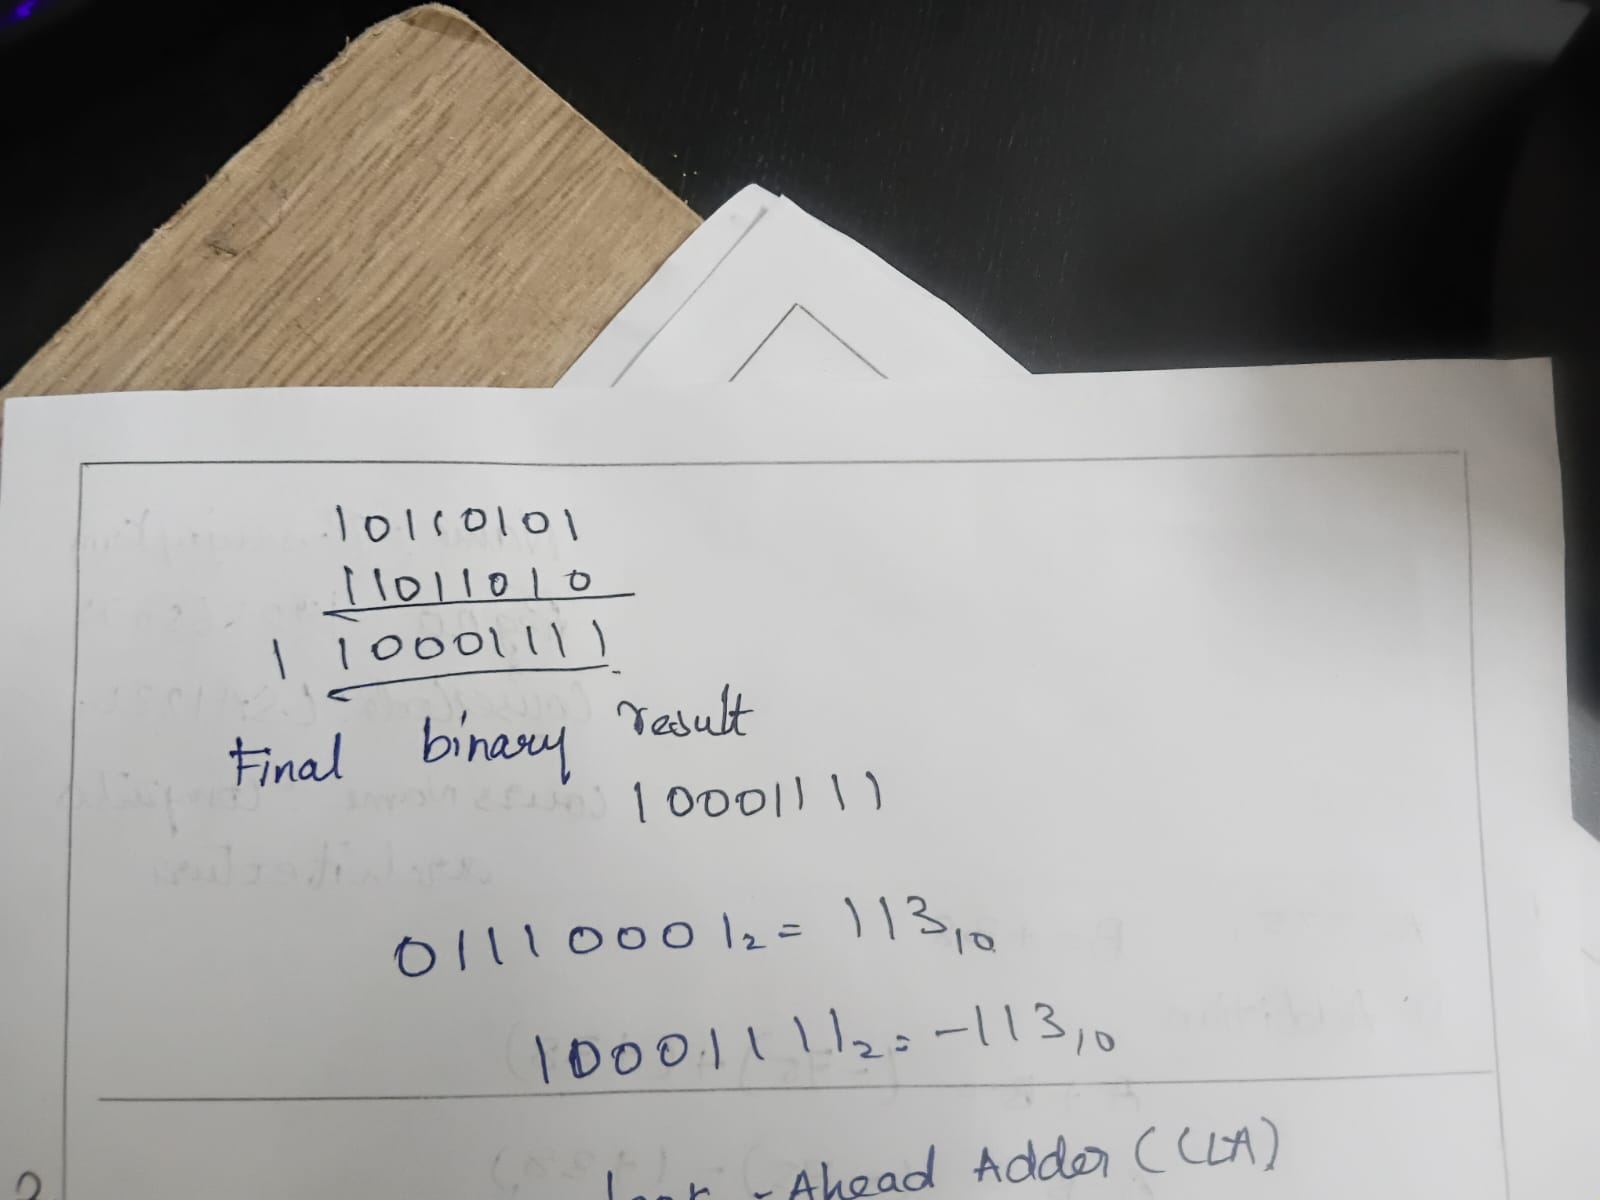 10110101
11011010
1 10001111
Final binary result
10001111
01110001₂ = 113₁₀
10001111₂ = -113₁₀
- Ahead Adder (CLA)